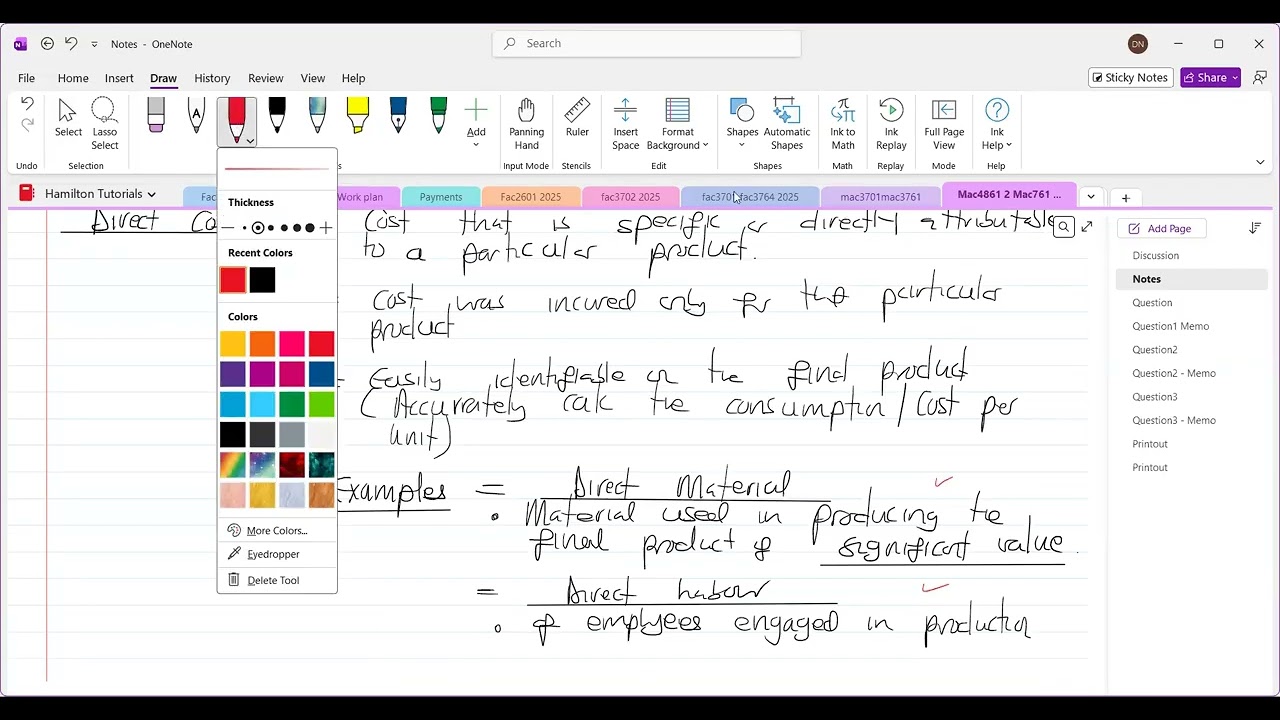 Notes - OneNote
Search
DN
File Home Insert Draw History Review View Help
Sticky Notes Share
Select Lasso Select Add Panning Hand Ruler Insert Space Format Background Shapes Automatic Shapes Ink to Math Ink Replay Full Page View Ink Help
Undo Selection Input Mode Stencils Edit Shapes Math Replay Mode Help
Hamilton Tutorials Fac Work plan Payments Fac2601 2025 fac3702 2025 fac3701 fac3764 2025 mac3701mac3761 Mac4861 2 Mac761 ...
Thickness
Recent Colors
Colors
More Colors...
Eyedropper
Delete Tool
Direct Co Cost that is specific or directly attributable
to a particular product.
Cost was incured only for the particular
product
Easily identifiable in the final product
(Accurrately calc the consumption / Cost per
unit)
Examples = Direct Material
• Material used in producing the
final product of significant value.
= Direct Labour
• of emplyees engaged in production
Add Page
Discussion
Notes
Question
Question1 Memo
Question2
Question2 - Memo
Question3
Question3 - Memo
Printout
Printout